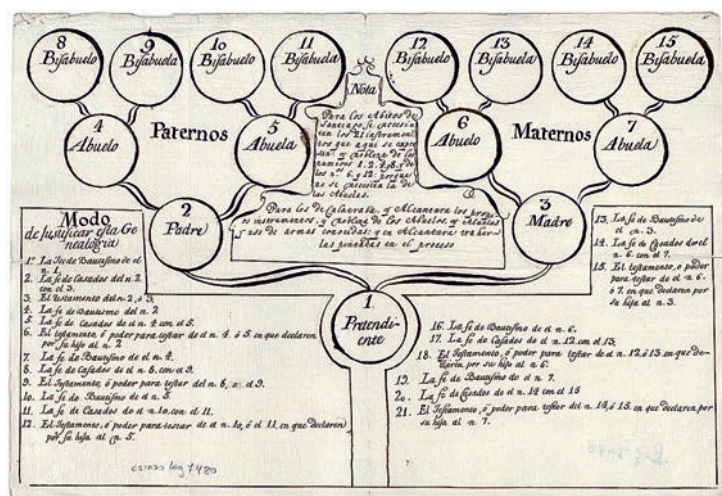 8
Bisabuelo
9
Bisabuela
10
Bisabuelo
11
Bisabuela
12
Bisabuelo
13
Bisabuela
14
Bisabuelo
15
Bisabuela
4
Abuelo
Paternos
5
Abuela
6
Abuelo
Maternos
7
Abuela
2
Padre
3
Madre
1.
Pretendi-
ente
Nota
Para los Abitos de
Santiago se necesi
tan los 21 instrumen
tos que aqui se expre
san, y nobleza de los
numeros 1. 2. 4. 8. y de
los n.os 6. y 12. porque
no se necesita la de
las Abuelas.
Para los de Calatraba, y Alcantara los propi
os instrumentos, y nobleza de los Abuelos, y Abuelas
y uso de armas
las pintadas en el proceso
Modo
de Justificar esta Ge
nealogia
1. La Fee de Bautismo de el
n. 1.
2. La fe de Casados del n. 2
con el 3.
3. El testamento del n. 2, ó 3.
4. La fe de Bautismo del n. 2
5. La fe de Casados de el n. 4 con el 5.
6. El testamento, ó poder para testar de el n. 4. ó 5. en que declaren
por su hijo al n. 2
7. La fe de Bautismo de el n. 4.
8. La fe de Casados de el n. 8. con el 9.
9. El Testamento, ó poder para testar del n. 8, el 9.
10. La fe de Bautismo de el n. 5.
11. La fe de Casados de el n. 10. con el 11.
12. El Testamento, ó poder para testar de el n. 10, ó el 11, en que declaren
por su hija al n. 5.
13. La fe de Bautismo de
el n. 3.
14. La fe de Casados de el
n. 6. con el 7.
15. El testamento, ó poder
para testar de el n. 6.
ó 7. en que declaren por
su hija al n. 3.
16. La fe de Bautismo de el n. 6.
17. La fe de Casados de el n. 12. con el 13.
18. El Testamento, ó poder para testar de el n. 12, ó 13 en que de-
claren por su hijo al n. 6.
19. La fe de Bautismo de el n. 7.
20. La fe de Casados de el n. 14 con el 15
21. El Testamento, ó poder para testar del n. 14, ó 15. en que declaren por
su hija al n. 7.
leg 1480